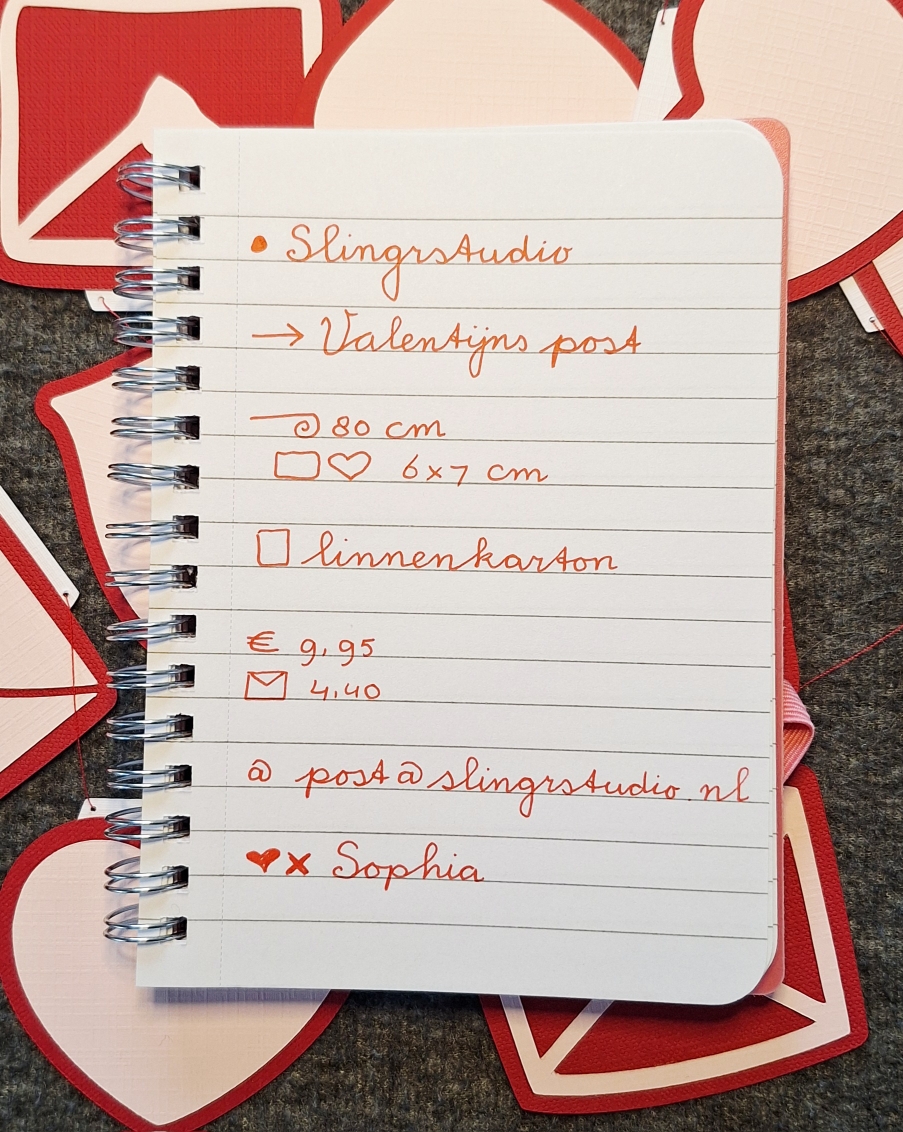 • Slingrstudio
→ Valentijns post
80 cm
6x7 cm
linnenkarton
€ 9,95
4,40
@ post@slingrstudio.nl
♥x Sophia